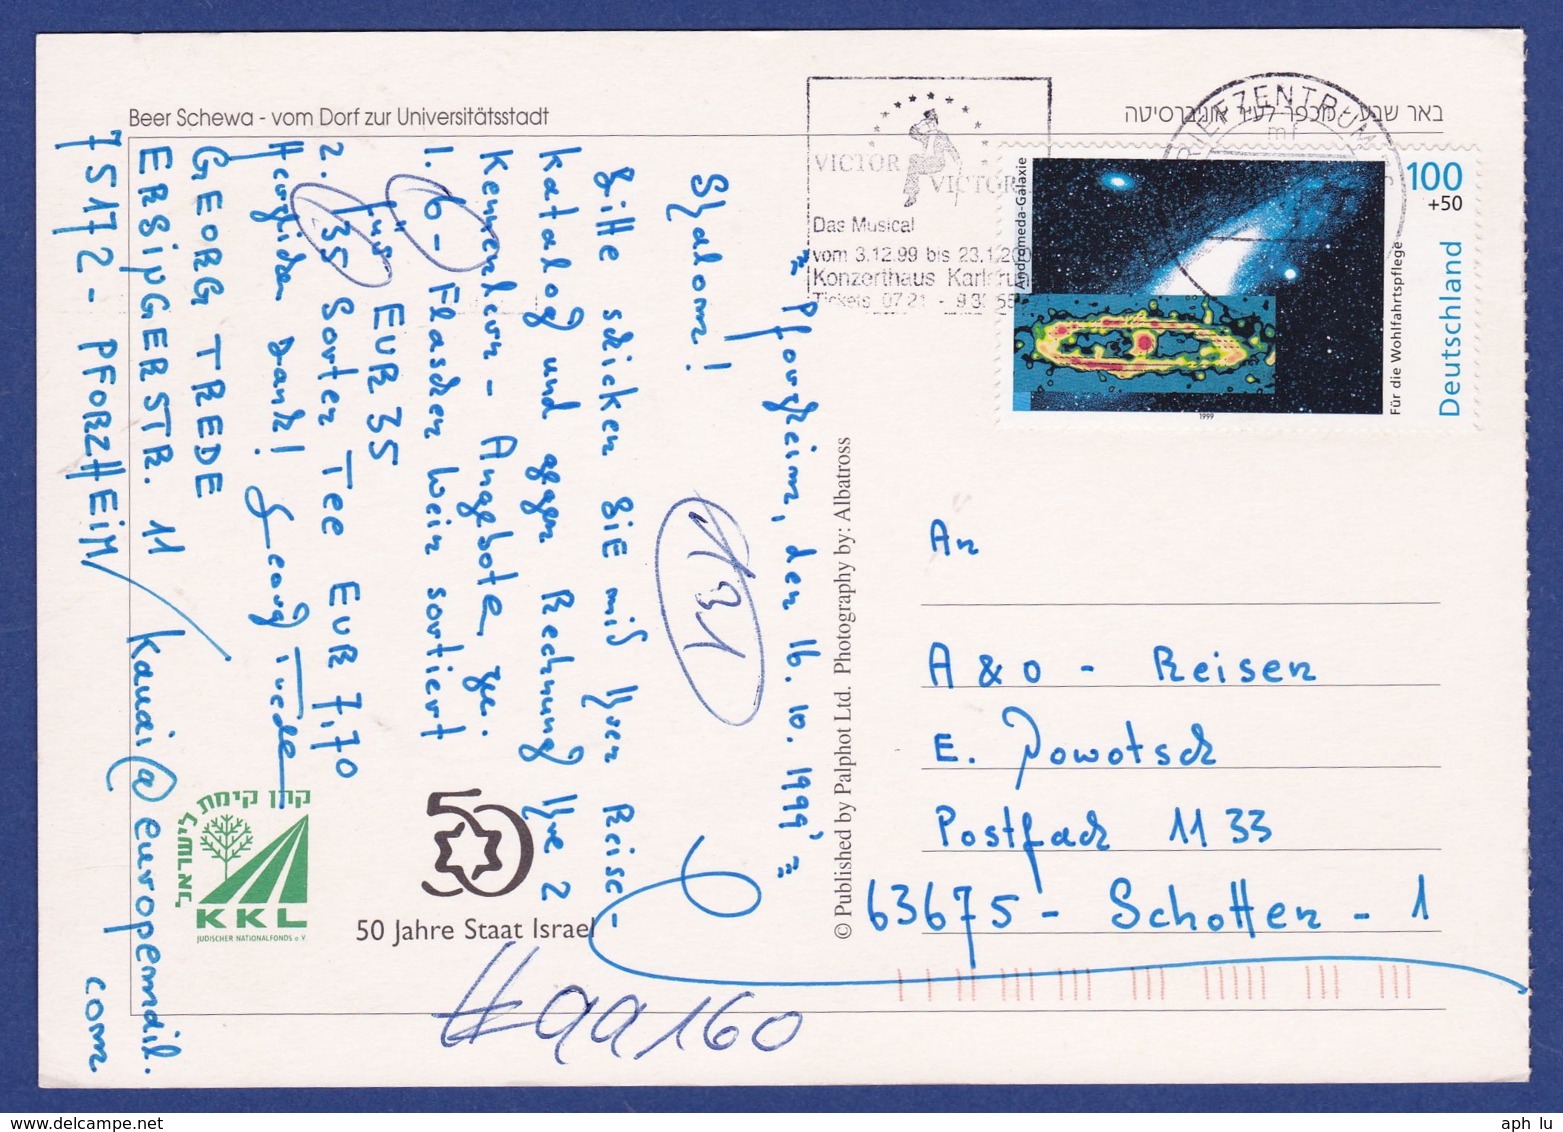 Beer Schewa - vom Dorf zur Universitätsstadt
באר שבע - מכפר לעיר אוניברסיטה
VICTOR
VICTOR
Das Musical
vom 3.12.99 bis 23.1.200
Konzerthaus Karlsruh
Tickets 07 21 - 9 3
BRIEFZENTRUM
mf
Andromeda-Galaxie
100
+50
Deutschland
Für die Wohlfahrtspflege
1999
= Pforzheim, den 16. 10. 1999 =
Shalom!
Bitte schicken SiE mir Ihren Reise-
katalog und gegen Rechnung Ihre 2
Kennenlern - Angebote zu:
1. 6 - Flaschen Wein sortiert
für EUR 35
2. 35 Sorten Tee EUR 7,70
Herzlichen Dank! Georg Trede
GEORG TREDE
ERSiNGERSTR. 11
75172 - PFORZHEiM/
Kanai@europemail.
com
131
© Published by Palphot Ltd. Photography by: Albatross
An
A & O - Reisen
E. Powotsch
Postfach 11 33
63675 - Schotten - 1
קרן קימת לישראל
KKL
JÜDISCHER NATIONALFONDS e.V.
50
50 Jahre Staat Israel
#99160
aph lu